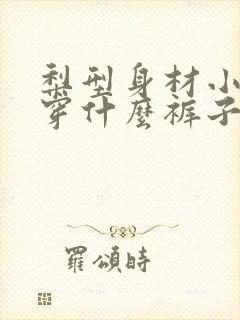 梨型身材小
穿什麼裤子
羅頌時